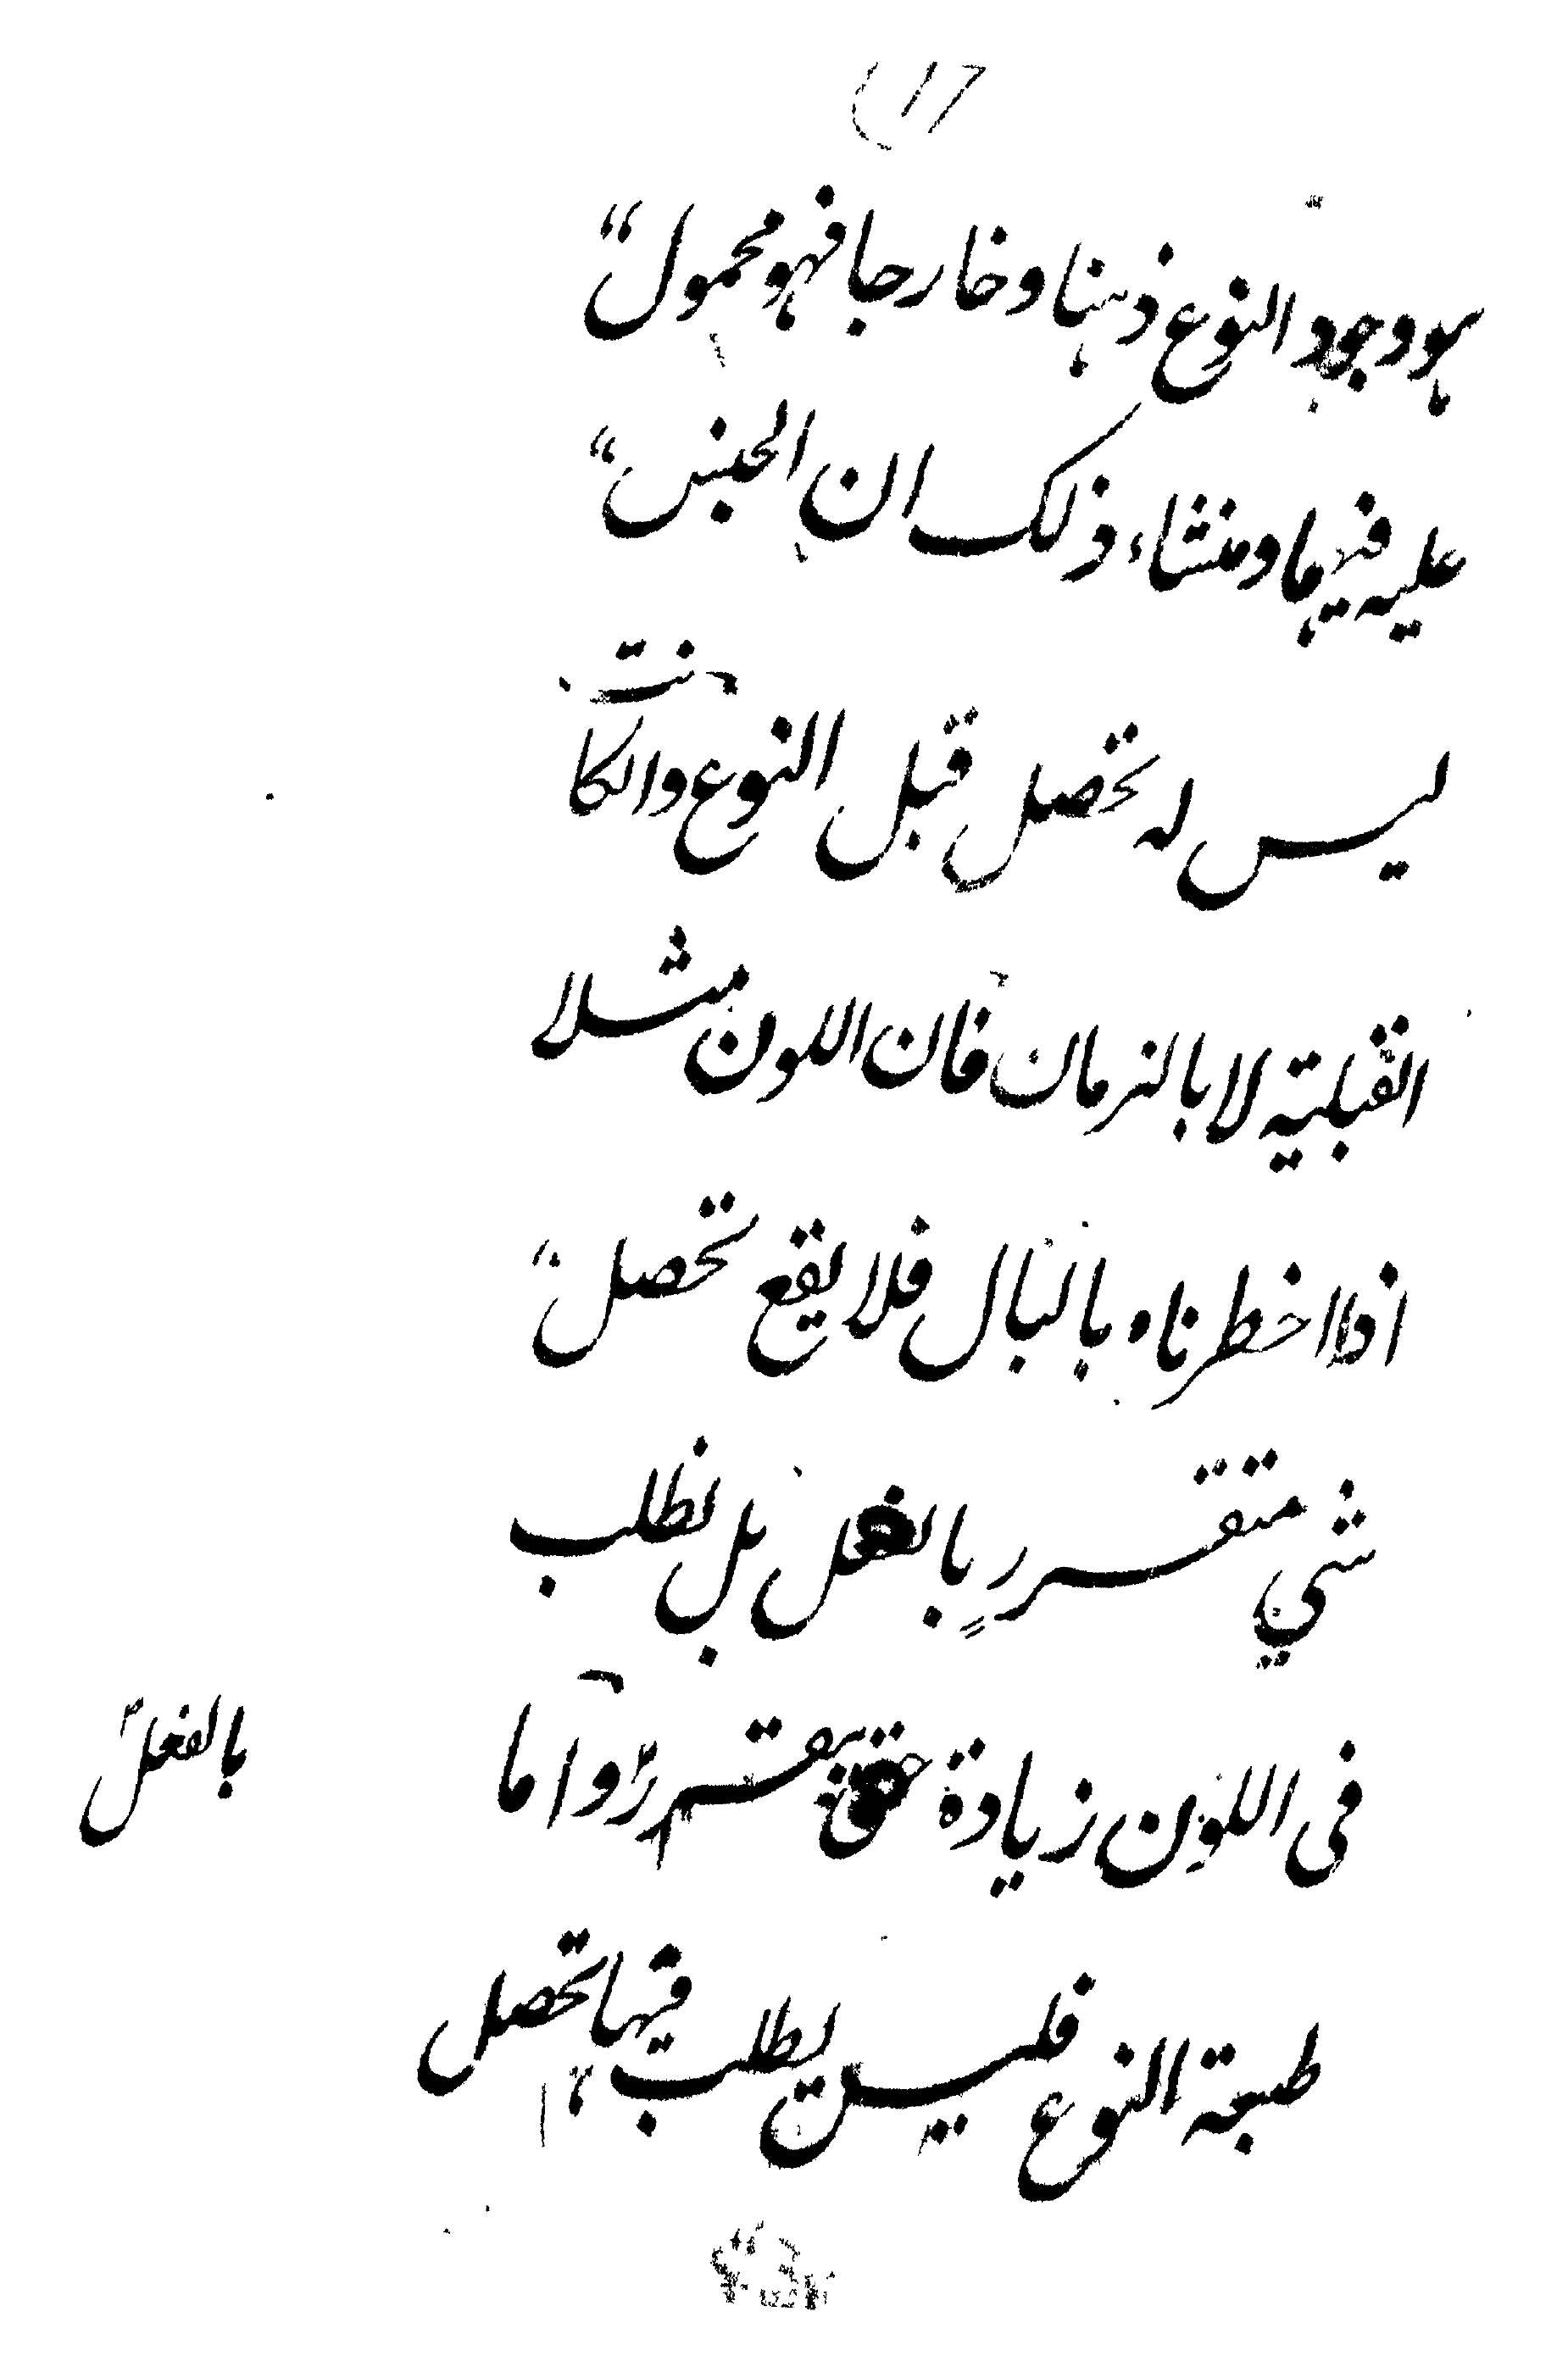 هو وجود النوع ذهنا وخارجا فهو محمول
عليه فيهما ومنشاء ذلك ان الجنس
ليس له تحصل قبل النوع وان كانت
القبلية لا بالزمان فان اللون مثلا
اذا اخطرناه بالبال فلا يقع تحصل
شي متقررٍ بالفعل بل يطلب
فى اللون زيادة حتى يتقرر واما
بالفعل
طبعة النوع فليس يطلب فيها تحصل